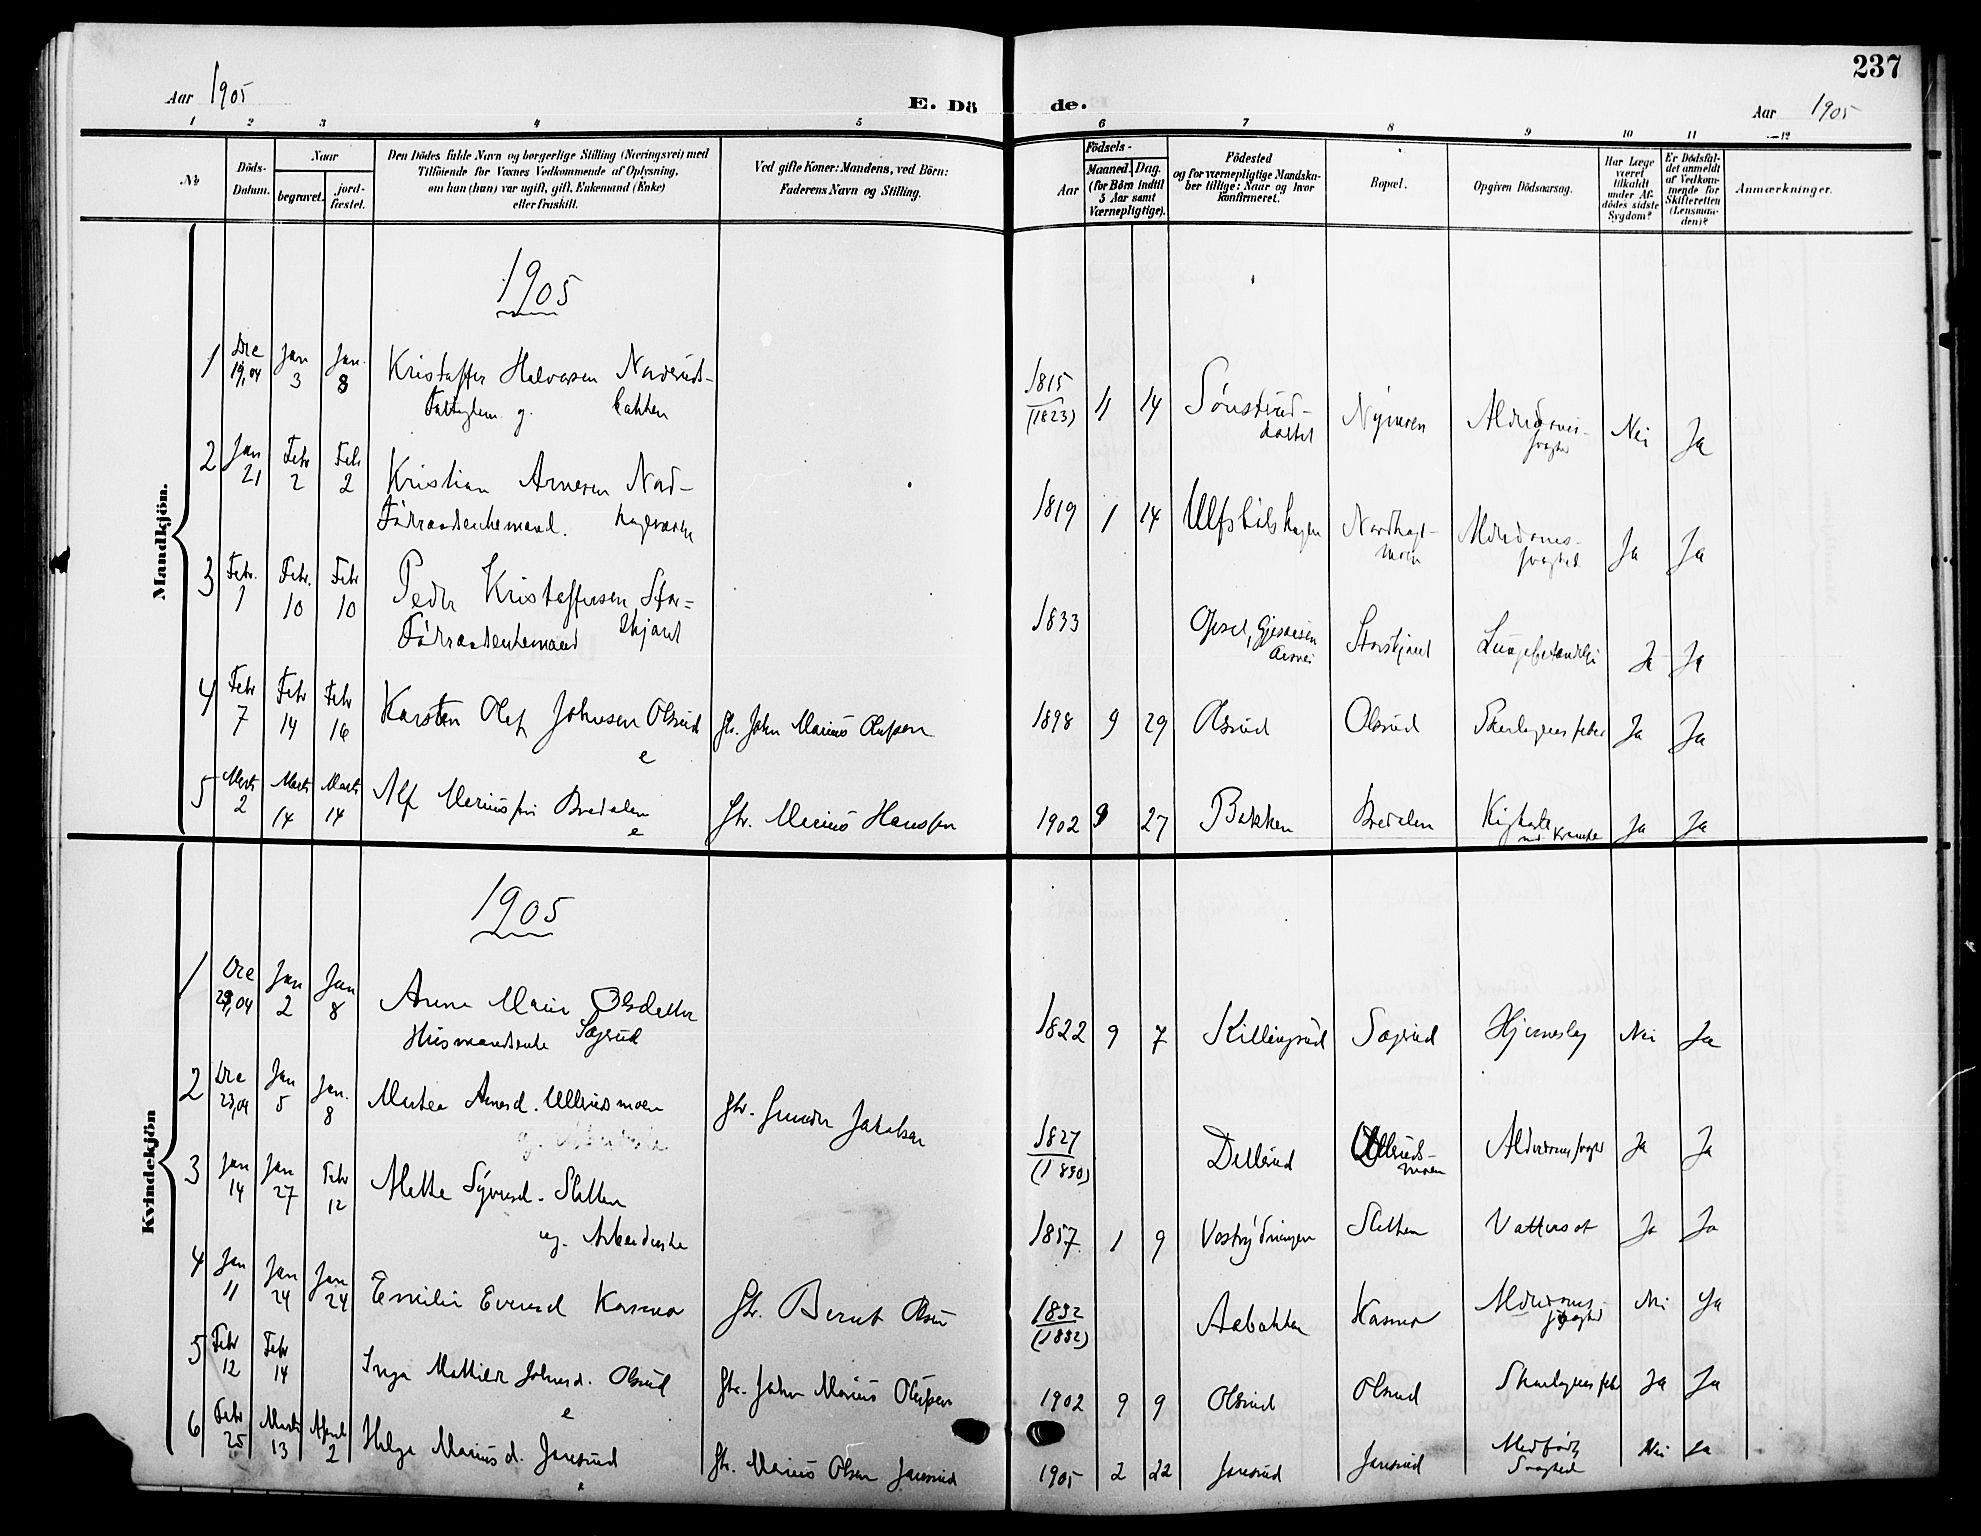 237
Aar 1905
E. Dö de.
Aar 1905
1 2 3 4 5 6 7 8 9 10 11 12
№
Döds-Datum.
Naar
begravet.
jord-fæstet.
Den Dödes fulde Navn og borgerlige Stilling (Næringsvei) med
Tilföiende for Voxnes Vedkommende af Oplysning,
om han (hun) var ugift, gift, Enkemand (Enke)
eller fraskilt.
Ved gifte Koner: Mandens, ved Börn:
Faderens Navn og Stilling.
Födsels-
Aar
Maaned.
Dag.
(for Börn indtil
5 Aar samt
Værnepligtige).
Födested
og for værnepligtige Mandska-
ber tillige: Naar og hvor
konfirmeret.
Bopæl.
Opgiven Dödsaarsag.
Har Læge
været
tilkaldt
under Af-
dödes sidste
Sygdom?
Er Dödsfal-
det anmeldt
af Vedkom-
mende for
Skifteretten
(Lensman-
den)?
Anmærkninger.
Mandkjön.
1905
1 Dec 19,04 Jan 3 Jan. 8 Kristoffer Halvorsen Norderuds-
bakken
g.
1815 (1823) 14 Sønsterud-
dalen
Nymoen Alderdoms-
svaghed
Nei Ja
2 Jan 21 Febr 2 Feb 2 Kristian Arnesen Nord-
Föderaadsenkemand.
1819 1 14 Ulfsbølshagen Nordhags-
moen
Alderdoms-
svaghed
Ja Ja
3 Febr. 1 Febr. 10 Febr 10 Peder Kristoffersen Stor=
skjæret
Föderaadsenkemand
1833 Opset, Gjesaasen
Storskjæret Lungebetændelse Ja Ja
4 Febr 7 Febr 14 Febr 16 Karsten Olaf Johnsen Olsrud
e
Gbr. John Marius Olufsen
1898 9 29 Olsrud Olsrud Skarlagensfeber Ja Ja
5 Marts 2 Marts 14 Marts 14 Alf Mariussen Bredalen
e
Gbr. Marius Hanssen
1902 9 27 Bakken Bredalen Kighoste
med Krampe
Ja Ja
Kvindekjön
1905
1 Dec 29,04 Jan 2 Jan 8 Anne Marie Olsdatter
Husmandsenke Sagrud
1822 9 7 Killingrud Sagrud Hjerneslag Nei Ja
2 Dec 23,04 Jan 5 Jan. 8 Martea Arnesd. Ullerudsmoen
Gbr. Gunder Jakobsen
1827 (1830) Dellerud Ulleruds-
moen
Alderdomssvaghed Ja Ja
3 Jan 14 Jan 27 Febr 12 Mette Syversd. Sletten
ug. Arbeiderske
1857 1 9 Sletten Vattersot Ja Ja
4 Jan 11 Jan 24 Jan 24 Emilie Evensd Kasmo
Gbr. Bernt Olsen
1832 (1832) Aabakken Kasmo Alderdoms-
svaghed
Nei Ja
5 Febr 12 Febr 14 Inga Mathilde Johnsd. Olsrud
e
Gbr. John Marius Olufsen
1902 9 9 Olsrud Olsrud Skarlagensfeber Ja Ja
6 Febr 25 Marts 13 April 2 Helga Mariusd. Jansrud
e
Gbr. Marius Olsen Jansrud
1905 2 22 Jansrud Jansrud Medfødt
Svaghed
Nei Ja